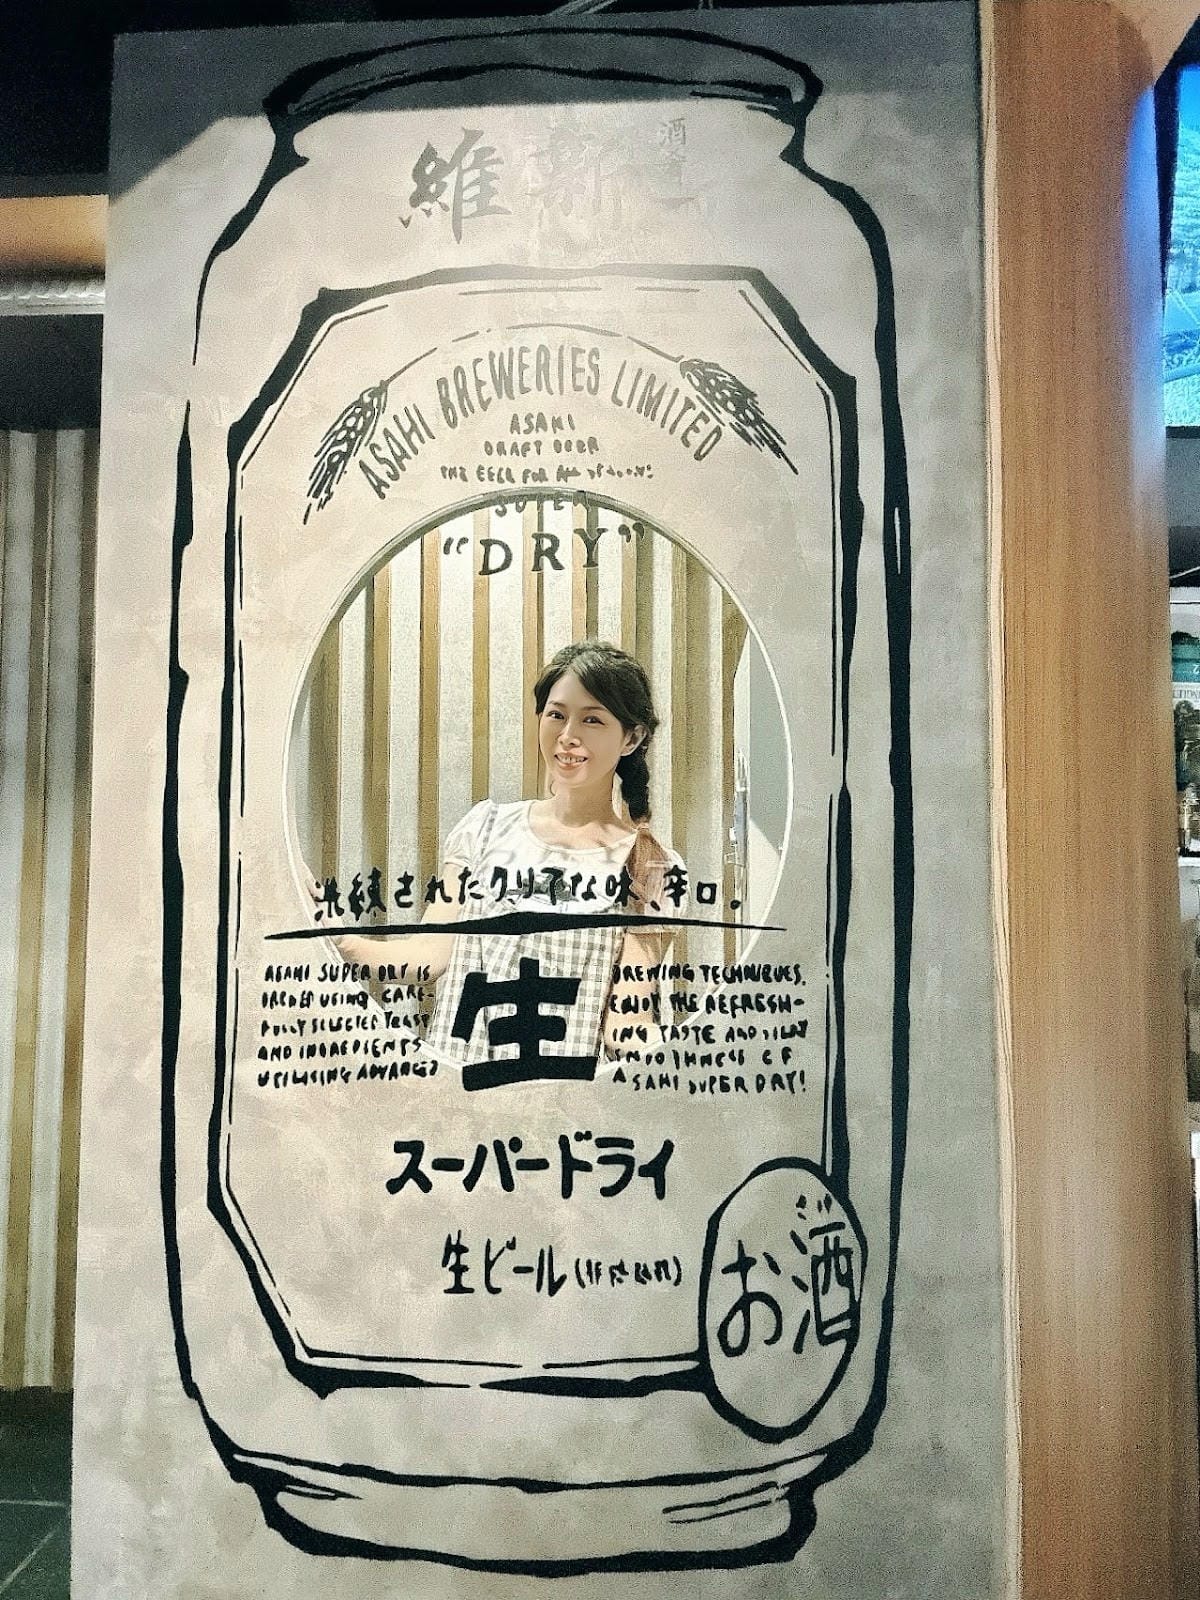 維新
酒
ASAHI BREWERIES LIMITED
ASAHI
DRAFT BEER
FOR
SUPER
"DRY"
洗練されたクリアな味、辛口。
ASAHI SUPER DRY IS
BREWED USING CARE-
FULLY SELECTED YEAST
AND INGREDIENTS
UTILISING ADVANCED
生
BREWING TECHNIQUES.
ENJOY THE REFRESH-
ING TASTE AND SILKY
SMOOTHNESS OF
ASAHI SUPER DRY!
スーパードライ
生ビール
お酒